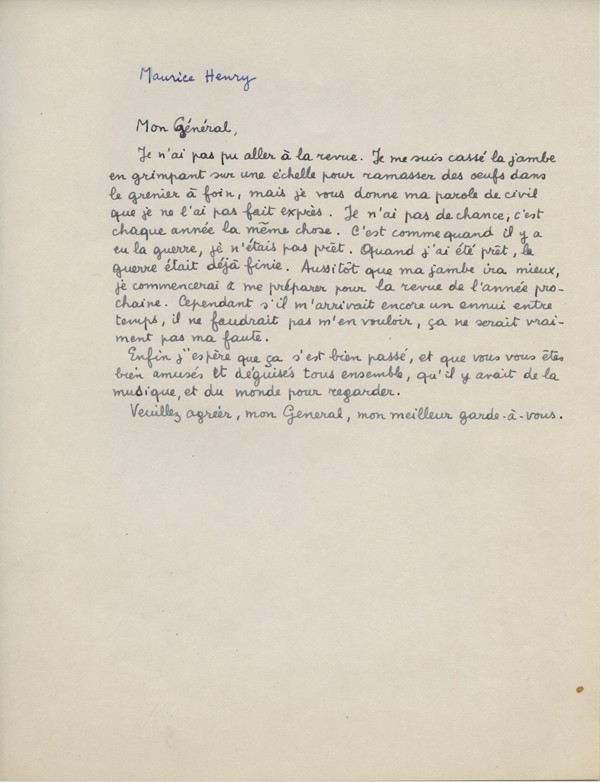 Maurice Henry
Mon Général,
Je n'ai pas pu aller à la revue. Je me suis cassé la jambe
en grimpant sur une échelle pour ramasser des oeufs dans
le grenier à foin, mais je vous donne ma parole de civil
que je ne l'ai pas fait exprès. Je n'ai pas de chance, c'est
chaque année la même chose. C'est comme quand il y a
eu la guerre, je n'étais pas prêt. Quand j'ai été prêt, la
guerre était déjà finie. Aussitôt que ma jambe ira mieux,
je commencerai à me préparer pour la revue de l'année pro-
chaine. Cependant s'il m'arrivait encore un ennui entre
temps, il ne faudrait pas m'en vouloir, ça ne serait vrai-
ment pas ma faute.
Enfin j'espère que ça s'est bien passé, et que vous vous êtes
bien amusés et déguisés tous ensemble, qu'il y avait de la
musique, et du monde pour regarder.
Veuillez agréer, mon Général, mon meilleur garde-à-vous.